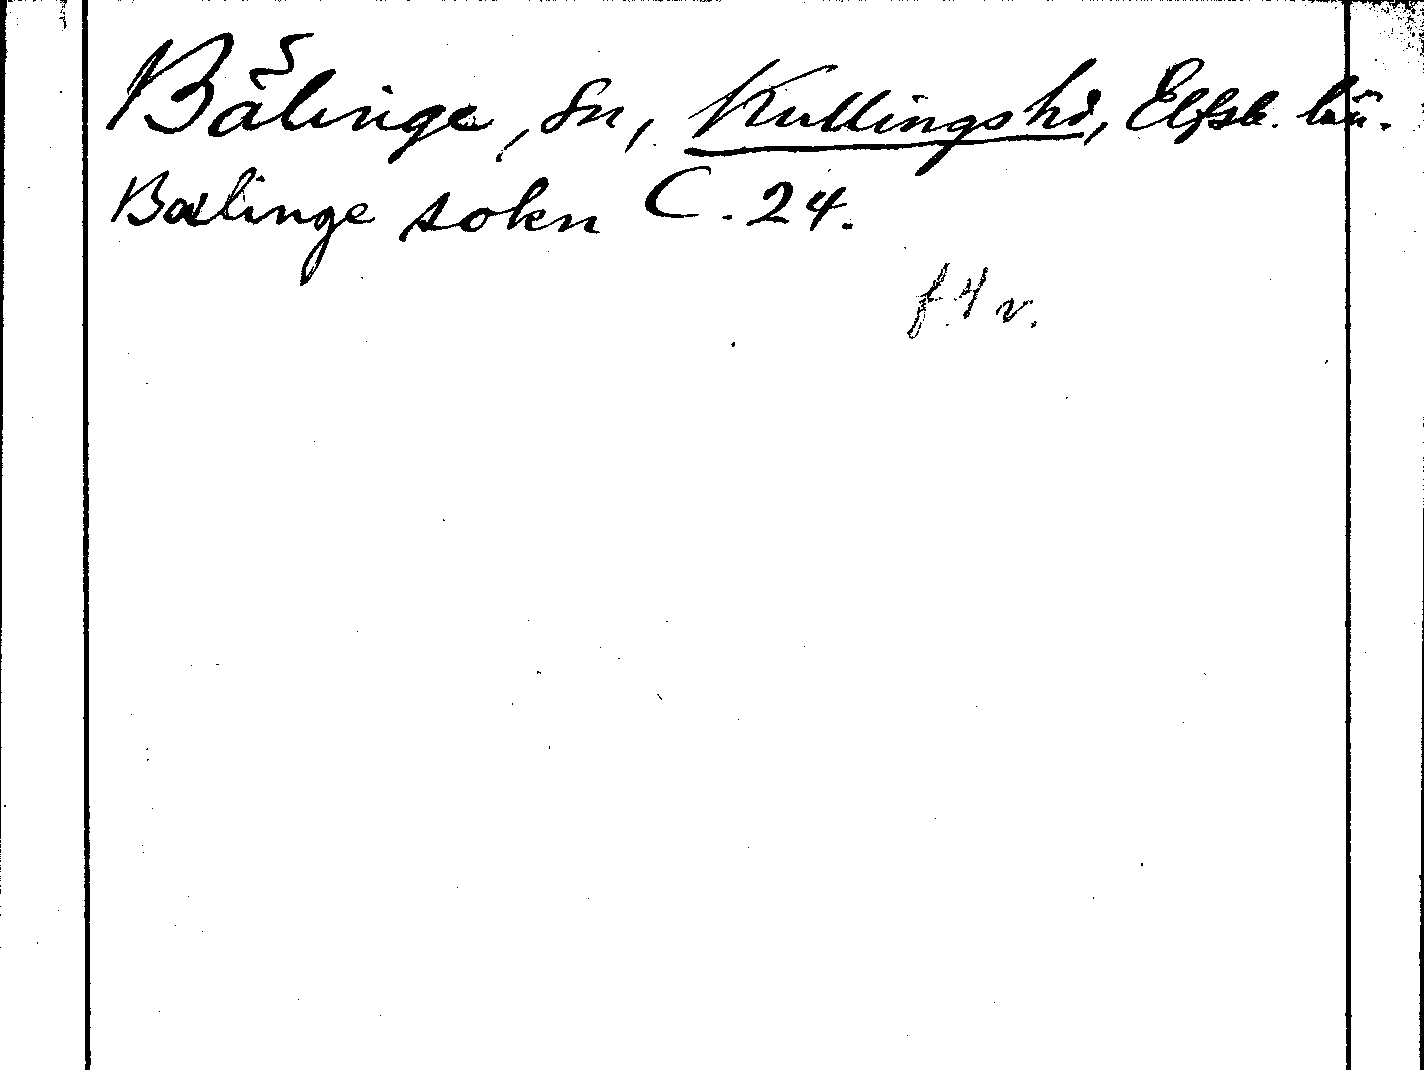 Bälinge, sn, Kullings hd, Elfsb. län.
Bælinge sokn C. 24.
f. 4 v.